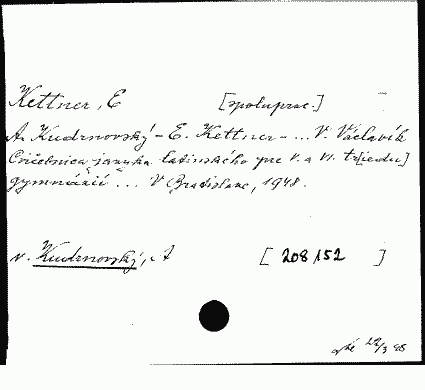 Kettner, E [spoluprac.]
A. Kudrnovský - E. Kettner - ... V. Václavík
Cvičebnica jazyka latinského pre V. a VI. tr[iedu]
gymnázií ... V Bratislave, 1948.
v. Kudrnovský, A [208152]
22/3 85